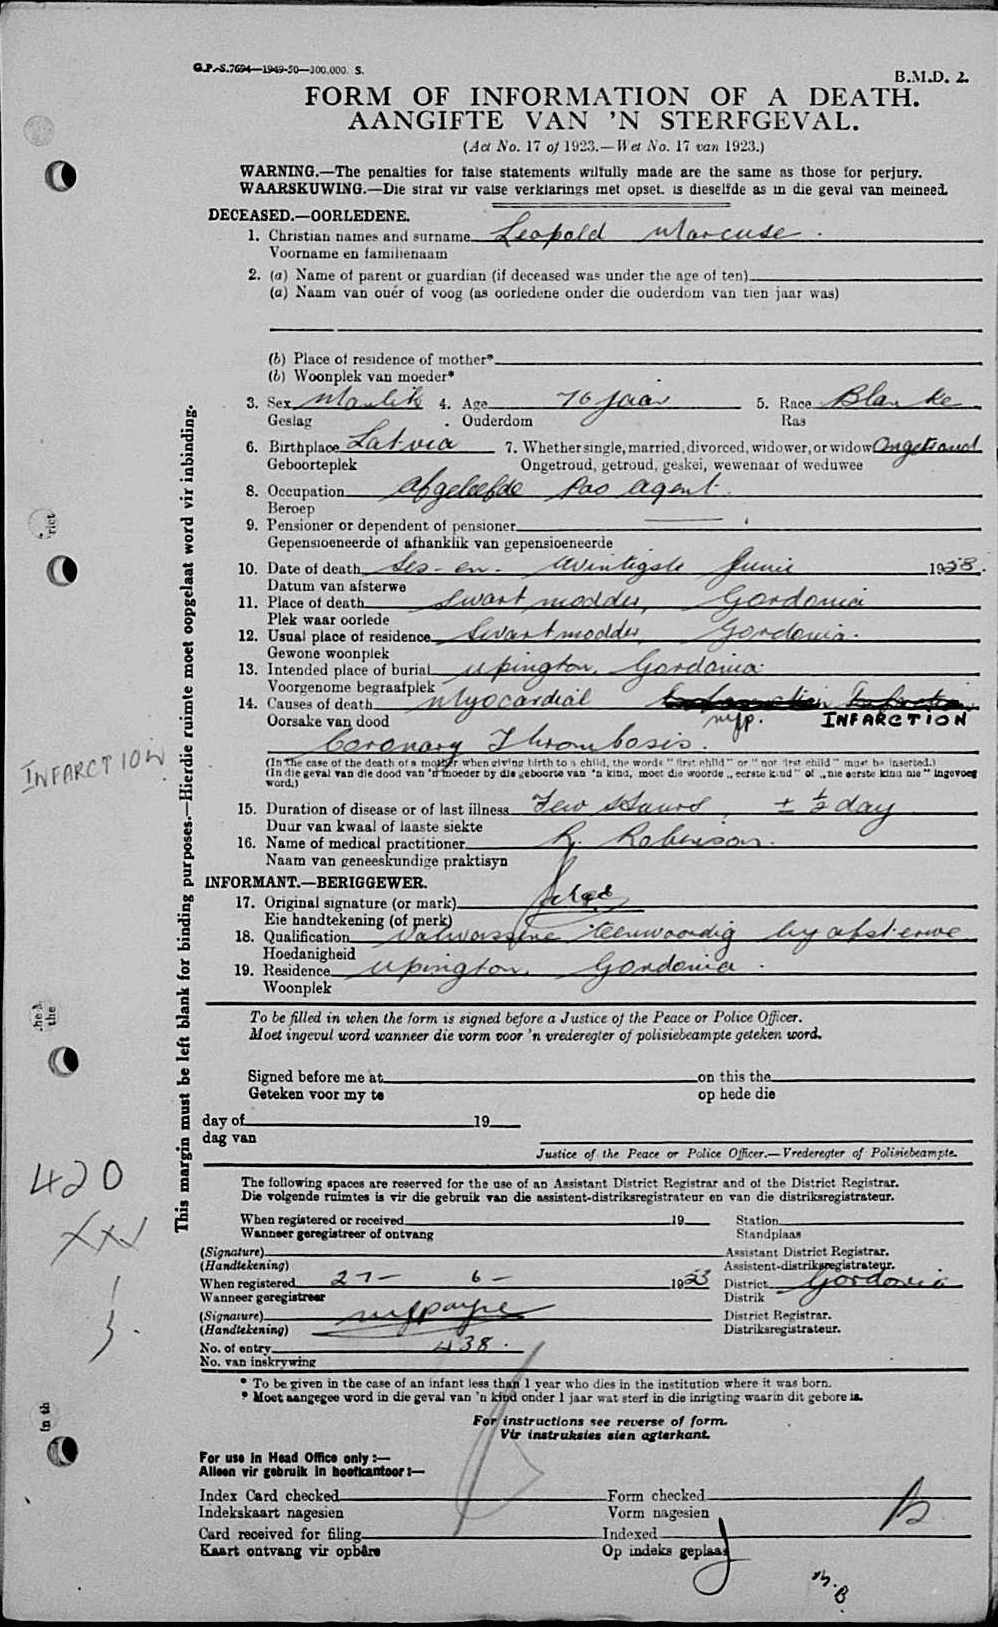 G.P.-S.7694—1949-50—300,000. S.
B.M.D. 2.
FORM OF INFORMATION OF A DEATH.
AANGIFTE VAN 'N STERFGEVAL.
(Act No. 17 of 1923.—Wet No. 17 van 1923.)
WARNING.—The penalties for false statements wilfully made are the same as those for perjury.
WAARSKUWING.—Die straf vir valse verklarings met opset. is dieselfde as in die geval van meineed.
DECEASED.—OORLEDENE.
1. Christian names and surname Leopold Marcuse.
Voorname en familienaam
2. (a) Name of parent or guardian (if deceased was under the age of ten)
(a) Naam van ouér of voog (as oorledene onder die ouderdom van tien jaar was)
(b) Place of residence of mother*
(b) Woonplek van moeder*
3. Sex Manlik 4. Age 76 jaar 5. Race Blanke
Geslag Ouderdom Ras
6. Birthplace Latvia 7. Whether single, married, divorced, widower, or widow Ongetroud
Geboorteplek Ongetroud, getroud, geskei, wewenaar of weduwee
8. Occupation Afgeleefde Pas agent.
Beroep
9. Pensioner or dependent of pensioner
Gepensioeneerde of afhanklik van gepensioeneerde
10. Date of death Ses-en-twintigste Junie 1953.
Datum van afsterwe
11. Place of death Swartmodder, Gordonia
Plek waar oorlede
12. Usual place of residence Swartmodder, Gordonia.
Gewone woonplek
13. Intended place of burial Upington, Gordonia.
Voorgenome begraafplek
14. Causes of death Myocardial
Oorsake van dood mfp. INFARCTION
Coronary Thrombosis.
(In the case of the death of a mother when giving birth to a child, the words "first child" or "not first child" must be inserted.)
(In die geval van die dood van 'n moeder by die geboorte van 'n kind, moet die woorde „eerste kind" of „nie eerste kind nie" ingevoeg word.)
INFARCTION
15. Duration of disease or of last illness Few Hours, ± ½ day
Duur van kwaal of laaste siekte
16. Name of medical practitioner R. Robinson.
Naam van geneeskundige praktisyn
INFORMANT.—BERIGGEWER.
17. Original signature (or mark)
Eie handtekening (of merk)
18. Qualification Volwassene teenwoordig by afsterwe
Hoedanigheid
19. Residence Upington, Gordonia.
Woonplek
To be filled in when the form is signed before a Justice of the Peace or Police Officer.
Moet ingevul word wanneer die vorm voor 'n vrederegter of polisiebeampte geteken word.
Signed before me at on this the
Geteken voor my te op hede die
day of 19
dag van
Justice of the Peace or Police Officer.—Vrederegter of Polisiebeampte.
The following spaces are reserved for the use of an Assistant District Registrar and of the District Registrar.
Die volgende ruimtes is vir die gebruik van die assistent-distriksregistrateur en van die distriksregistrateur.
When registered or received 19 Station
Wanneer geregistreer of ontvang Standplaas
(Signature) Assistant District Registrar.
(Handtekening) Assistent-distriksregistrateur.
When registered 27- 6- 1953 District Gordonia
Wanneer geregistreer Distrik
(Signature) District Registrar.
(Handtekening) Distriksregistrateur.
No. of entry 438.
No. van inskrywing
* To be given in the case of an infant less than 1 year who dies in the institution where it was born.
* Moet aangegee word in die geval van 'n kind onder 1 jaar wat sterf in die inrigting waarin dit gebore is.
For instructions see reverse of form.
Vir instruksies sien agterkant.
For use in Head Office only:—
Alleen vir gebruik in hoofkantoor:—
Index Card checked Form checked
Indekskaart nagesien Vorm nagesien
Card received for filing Indexed
Kaart ontvang vir opbêre Op indeks geplaas
This margin must be left blank for binding purposes.—Hierdie ruimte moet oopgelaat word vir inbinding.
420